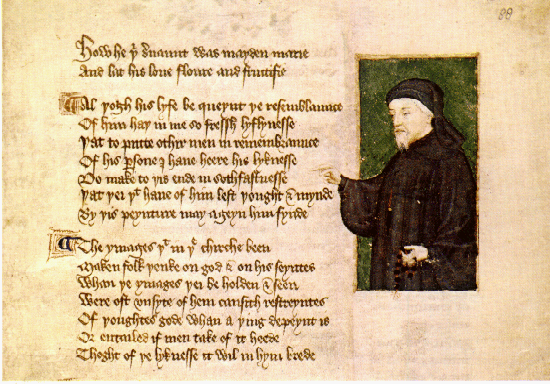 88
How he þͥ ẜuaunt was mayden marie
And lat his loue floure and fructifie
Al þogh his lyfe be queynt þe resemblaunce
Of him haþ in me so fressh lyflynesse
Þat to putte othir men in remembraunce
Of his ꝑsone I haue heere his lyknesse
Do make to þis ende in sothfastnesse
Þat þei þͭ haue of him lest þought & mynde
By þis peynture may ageyn him fynde
The ymages þͭ in þͤ chirche been
Maken folk þenke on god & on his seyntes
Whan þe ymages þei beholden & seen
Were oft vnsyte of hem causith restreyntes
Of þoughtes gode whan a þing depeynt is
Or entailed if men take of it heede
Thoght of þe lyknesse it wil in hym brede